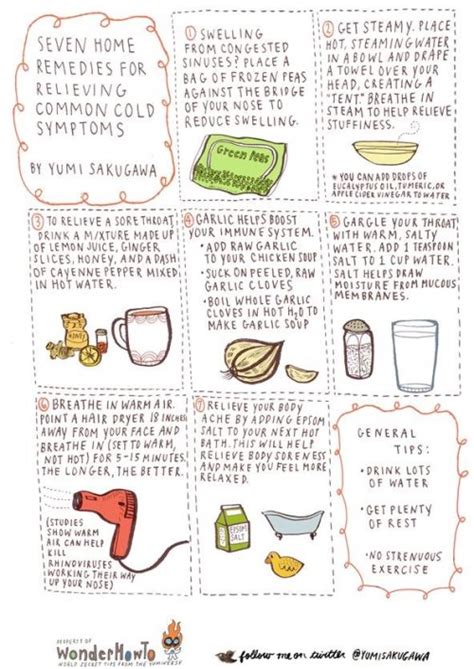 SEVEN HOME
REMEDIES FOR
RELIEVING
COMMON COLD
SYMPTOMS
BY YUMI SAKUGAWA
① SWELLING
FROM CONGESTED
SINUSES? PLACE A
BAG OF FROZEN PEAS
AGAINST THE BRIDGE
OF YOUR NOSE TO
REDUCE SWELLING.
GREEN PEAS
② GET STEAMY. PLACE
HOT, STEAMING WATER
IN A BOWL AND DRAPE
A TOWEL OVER YOUR
HEAD, CREATING A
"TENT." BREATHE IN
STEAM TO HELP RELIEVE
STUFFINESS.
*YOU CAN ADD DROPS OF
EUCALYPTUS OIL, TUMERIC, OR
APPLE CIDER VINEGAR TO WATER
③ TO RELIEVE A SORE THROAT,
DRINK A MIXTURE MADE UP
OF LEMON JUICE, GINGER
SLICES, HONEY, AND A DASH
OF CAYENNE PEPPER MIXED
IN HOT WATER.
HONEY
④ GARLIC HELPS BOOST
YOUR IMMUNE SYSTEM.
• ADD RAW GARLIC
TO YOUR CHICKEN SOUP
• SUCK ON PEELED, RAW
GARLIC CLOVES
• BOIL WHOLE GARLIC
CLOVES IN HOT H2O TO
MAKE GARLIC SOUP
⑤ GARGLE YOUR THROAT
WITH WARM, SALTY
WATER. ADD 1 TEASPOON
SALT TO 1 CUP WATER.
SALT HELPS DRAW
MOISTURE FROM MUCOUS
MEMBRANES.
⑥ BREATHE IN WARM AIR.
POINT A HAIR DRYER 18 INCHES
AWAY FROM YOUR FACE AND
BREATHE IN (SET TO WARM,
NOT HOT) FOR 5-15 MINUTES.
THE LONGER, THE BETTER.
(STUDIES
SHOW WARM
AIR CAN HELP
KILL
RHINOVIRUSES
WORKING THEIR WAY
UP YOUR NOSE)
⑦ RELIEVE YOUR BODY
ACHE BY ADDING EPSOM
SALT TO YOUR NEXT HOT
BATH. THIS WILL HELP
RELIEVE BODY SORENESS
AND MAKE YOU FEEL MORE
RELAXED.
EPSOM
SALT
GENERAL
TIPS:
• DRINK LOTS
OF WATER
• GET PLENTY
OF REST
• NO STRENUOUS
EXERCISE
PROPERTY OF
WonderHowTo
WORLD SECRET TIPS FROM THE YUMIVERSE
follow me on twitter @YUMISAKUGAWA